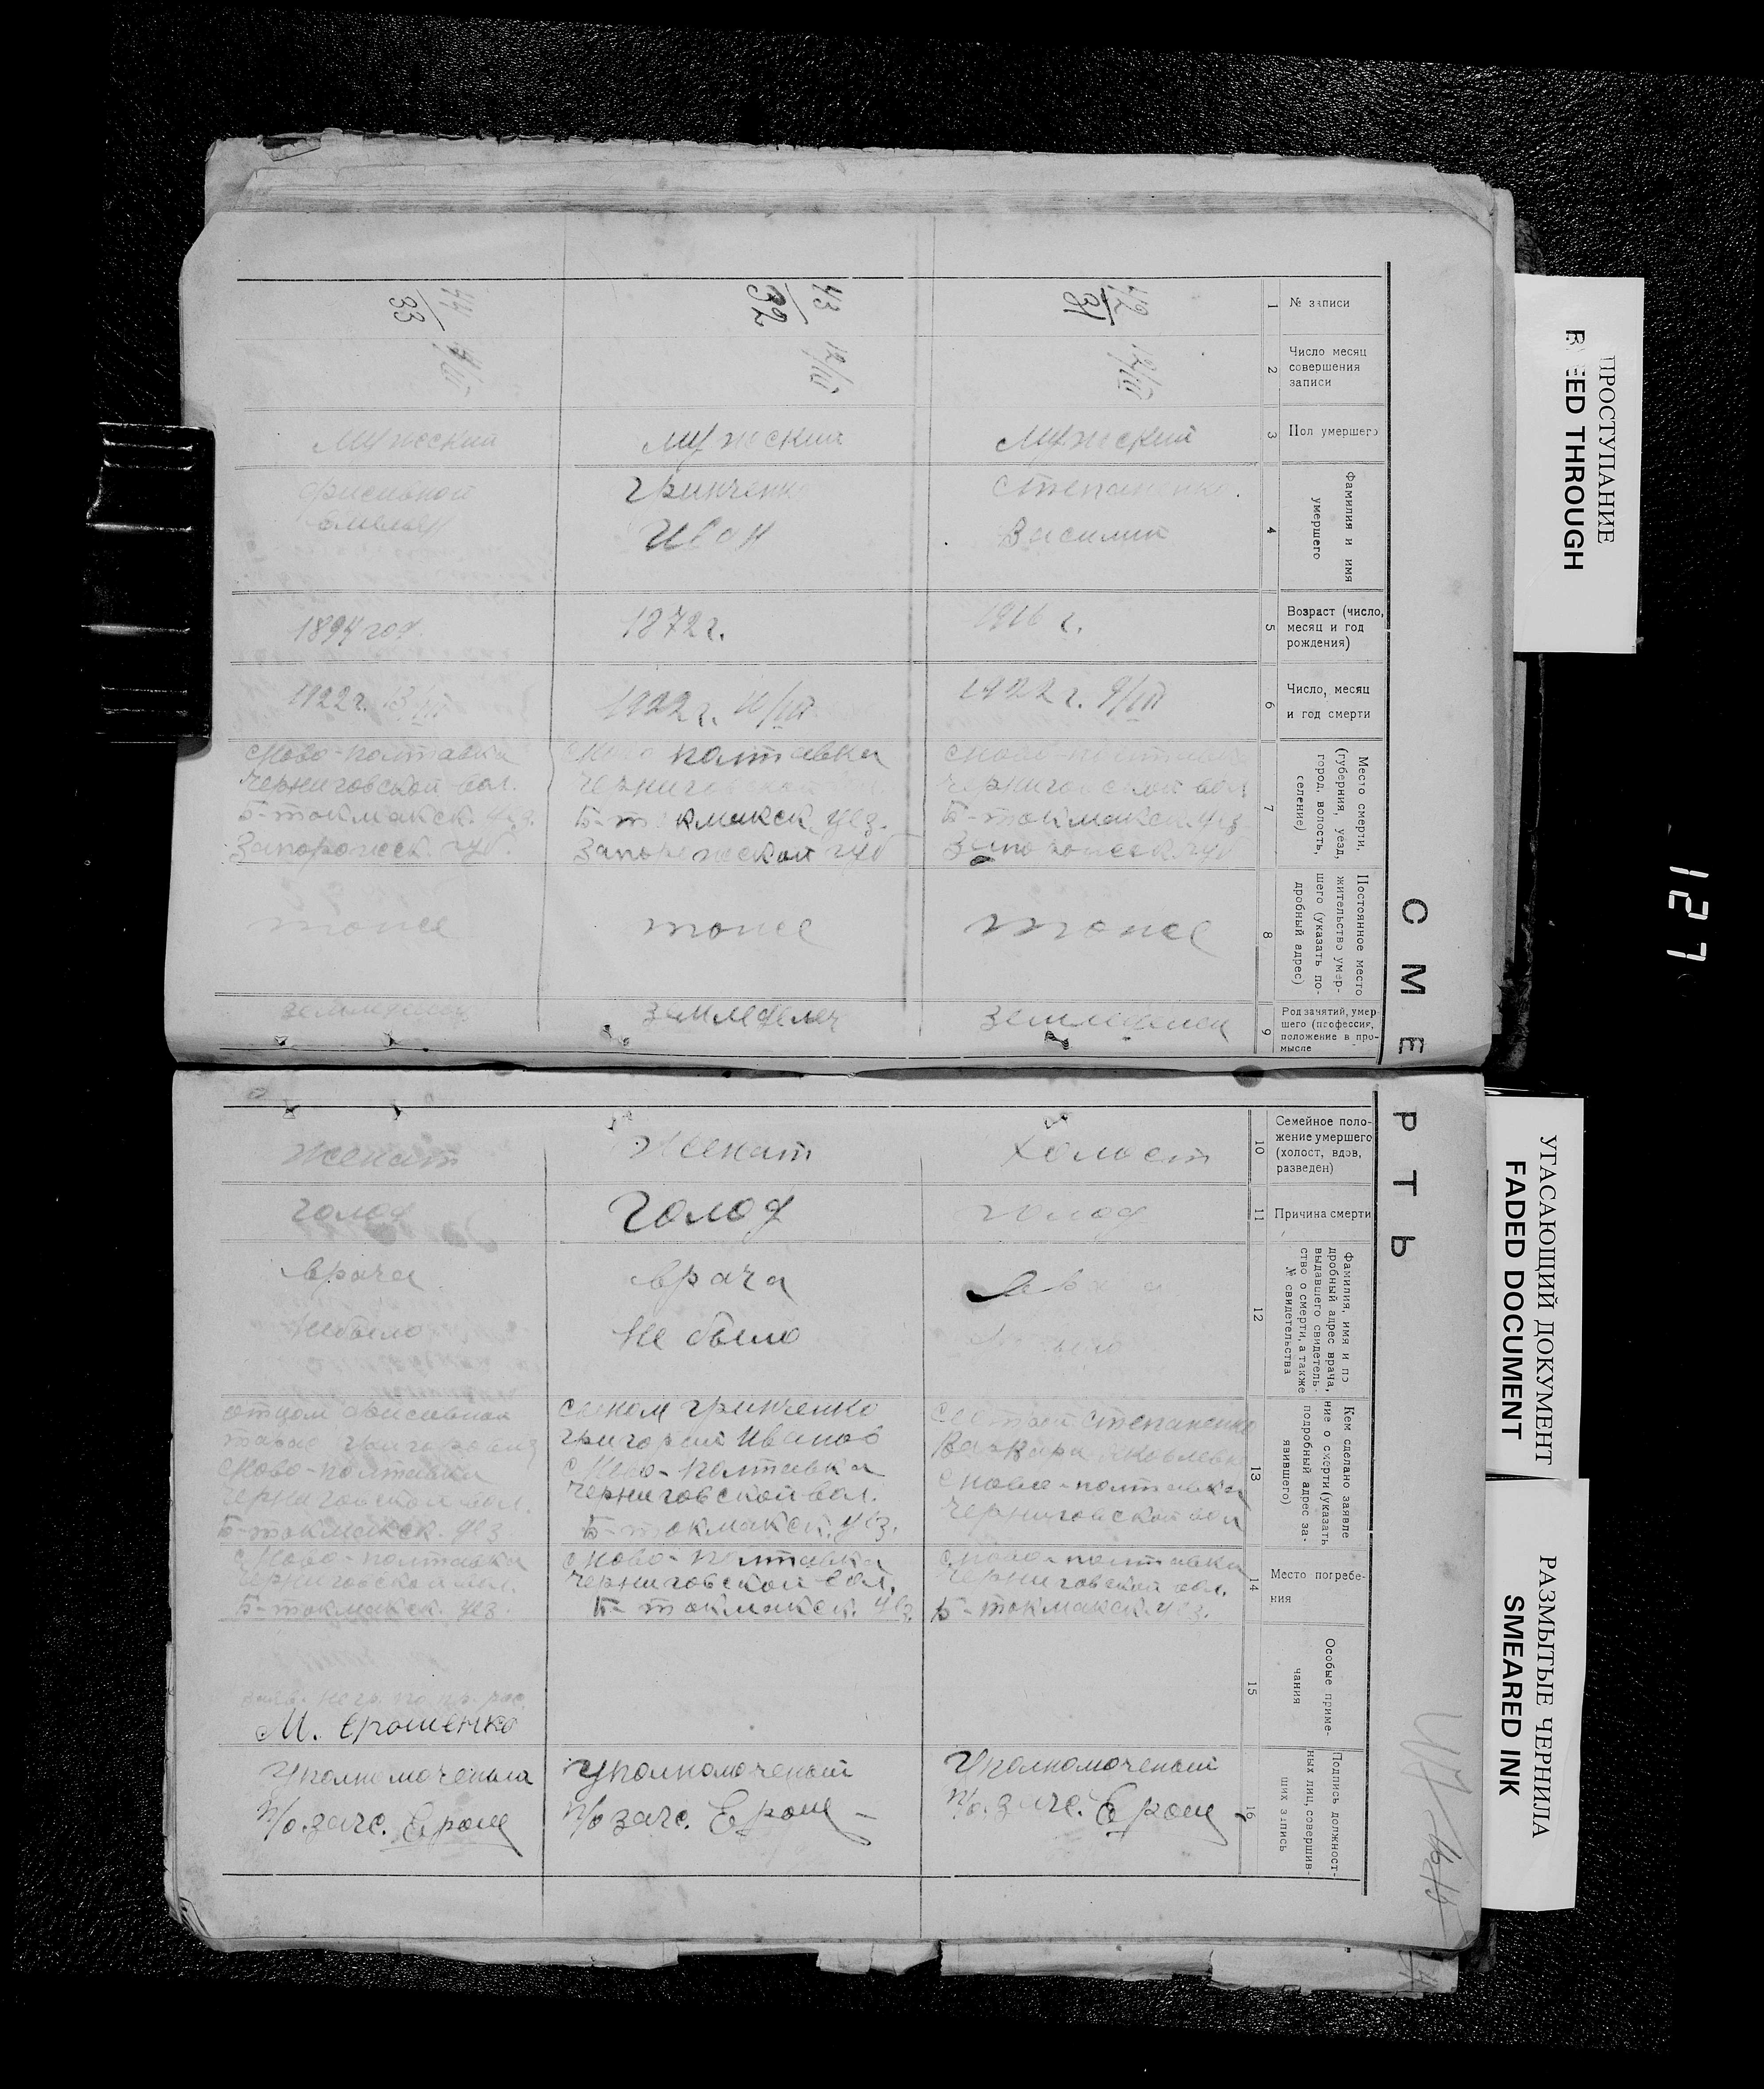 СМЕРТЬ
1
№ записи
2
Число месяц
совершения
записи
3
Пол умершего
4
Фамилия и имя
умершего
5
Возраст (число,
месяц и год
рождения)
6
Число, месяц
и год смерти
7
Место смерти,
(губерния, уезд,
город, волость,
селение)
8
Постоянное место
жительство умер-
шего (указать по-
дробный адрес)
9
Род занятий, умер-
шего (профессия,
положение в про-
мысле
10
Семейное поло-
жение умершего
(холост, вдов,
разведен)
11
Причина смерти
12
Фамилия, имя и по
дробный адрес врача,
выдавшего свидетель-
ство о смерти, а также
№ свидетельства
13
Кем сделано заявле
ние о смерти (указать
подробный адрес за-
явившего)
14
Место погребе-
ния
15
Особые приме-
чания
16
Подпись должност-
ных лиц, совершив-
ших запись
42
12/III
Мужский
Степаненко
Василий
1916 г.
1922 г. 9/III
с Ново-полтавка
Черниговской вол
Б-токмакск. уез
Запорожск. губ
тоже
земледелец
холост
голод
сестрой Степаненко
Варвара Яковлевн
с Ново-полтавка
Черниговской вол
с Ново-полтавка
Черниговской вол.
Б-токмакск. уез.
Уполномоченый
п/о. загс. Ерощ
43/32
12/III
мужский
Гринченко
Иван
1872 г.
1922 г. 11/III
с Ново полтавка
Черниговской вол.
Б-токмакск. уез.
Запорожской губ
тоже
земледелец
Женат
Голод
врача
не было
сыном Гринченко
Григорий Иванов
с Ново-полтавка
Черниговской вол.
Б-токмакск. уез.
с Ново-полтавка
Черниговской вол.
Б-токмакск. уез.
Уполномоченый
п/о загс. Ерощ
44/33
Мужский
1894 год.
1922 г. 13/III
с Ново-полтавка
Черниговской вол.
Б-токмакск. уез.
Запорожск. губ.
тоже
земледелец
женат
голод
врача
небыло
отцом
Григорович
с Ново-полтавка
Черниговской вол.
Б-токмакск. уез
с Ново-полтавка
Черниговской вол.
Б-токмакск. уез
М. Ерошенко
п/о. загс. Ерощ
ПРОСТУПАНИЕ
BLEED THROUGH
127
УГАСАЮЩИЙ ДОКУМЕНТ
FADED DOCUMENT
РАЗМЫТЫЕ ЧЕРНИЛА
SMEARED INK